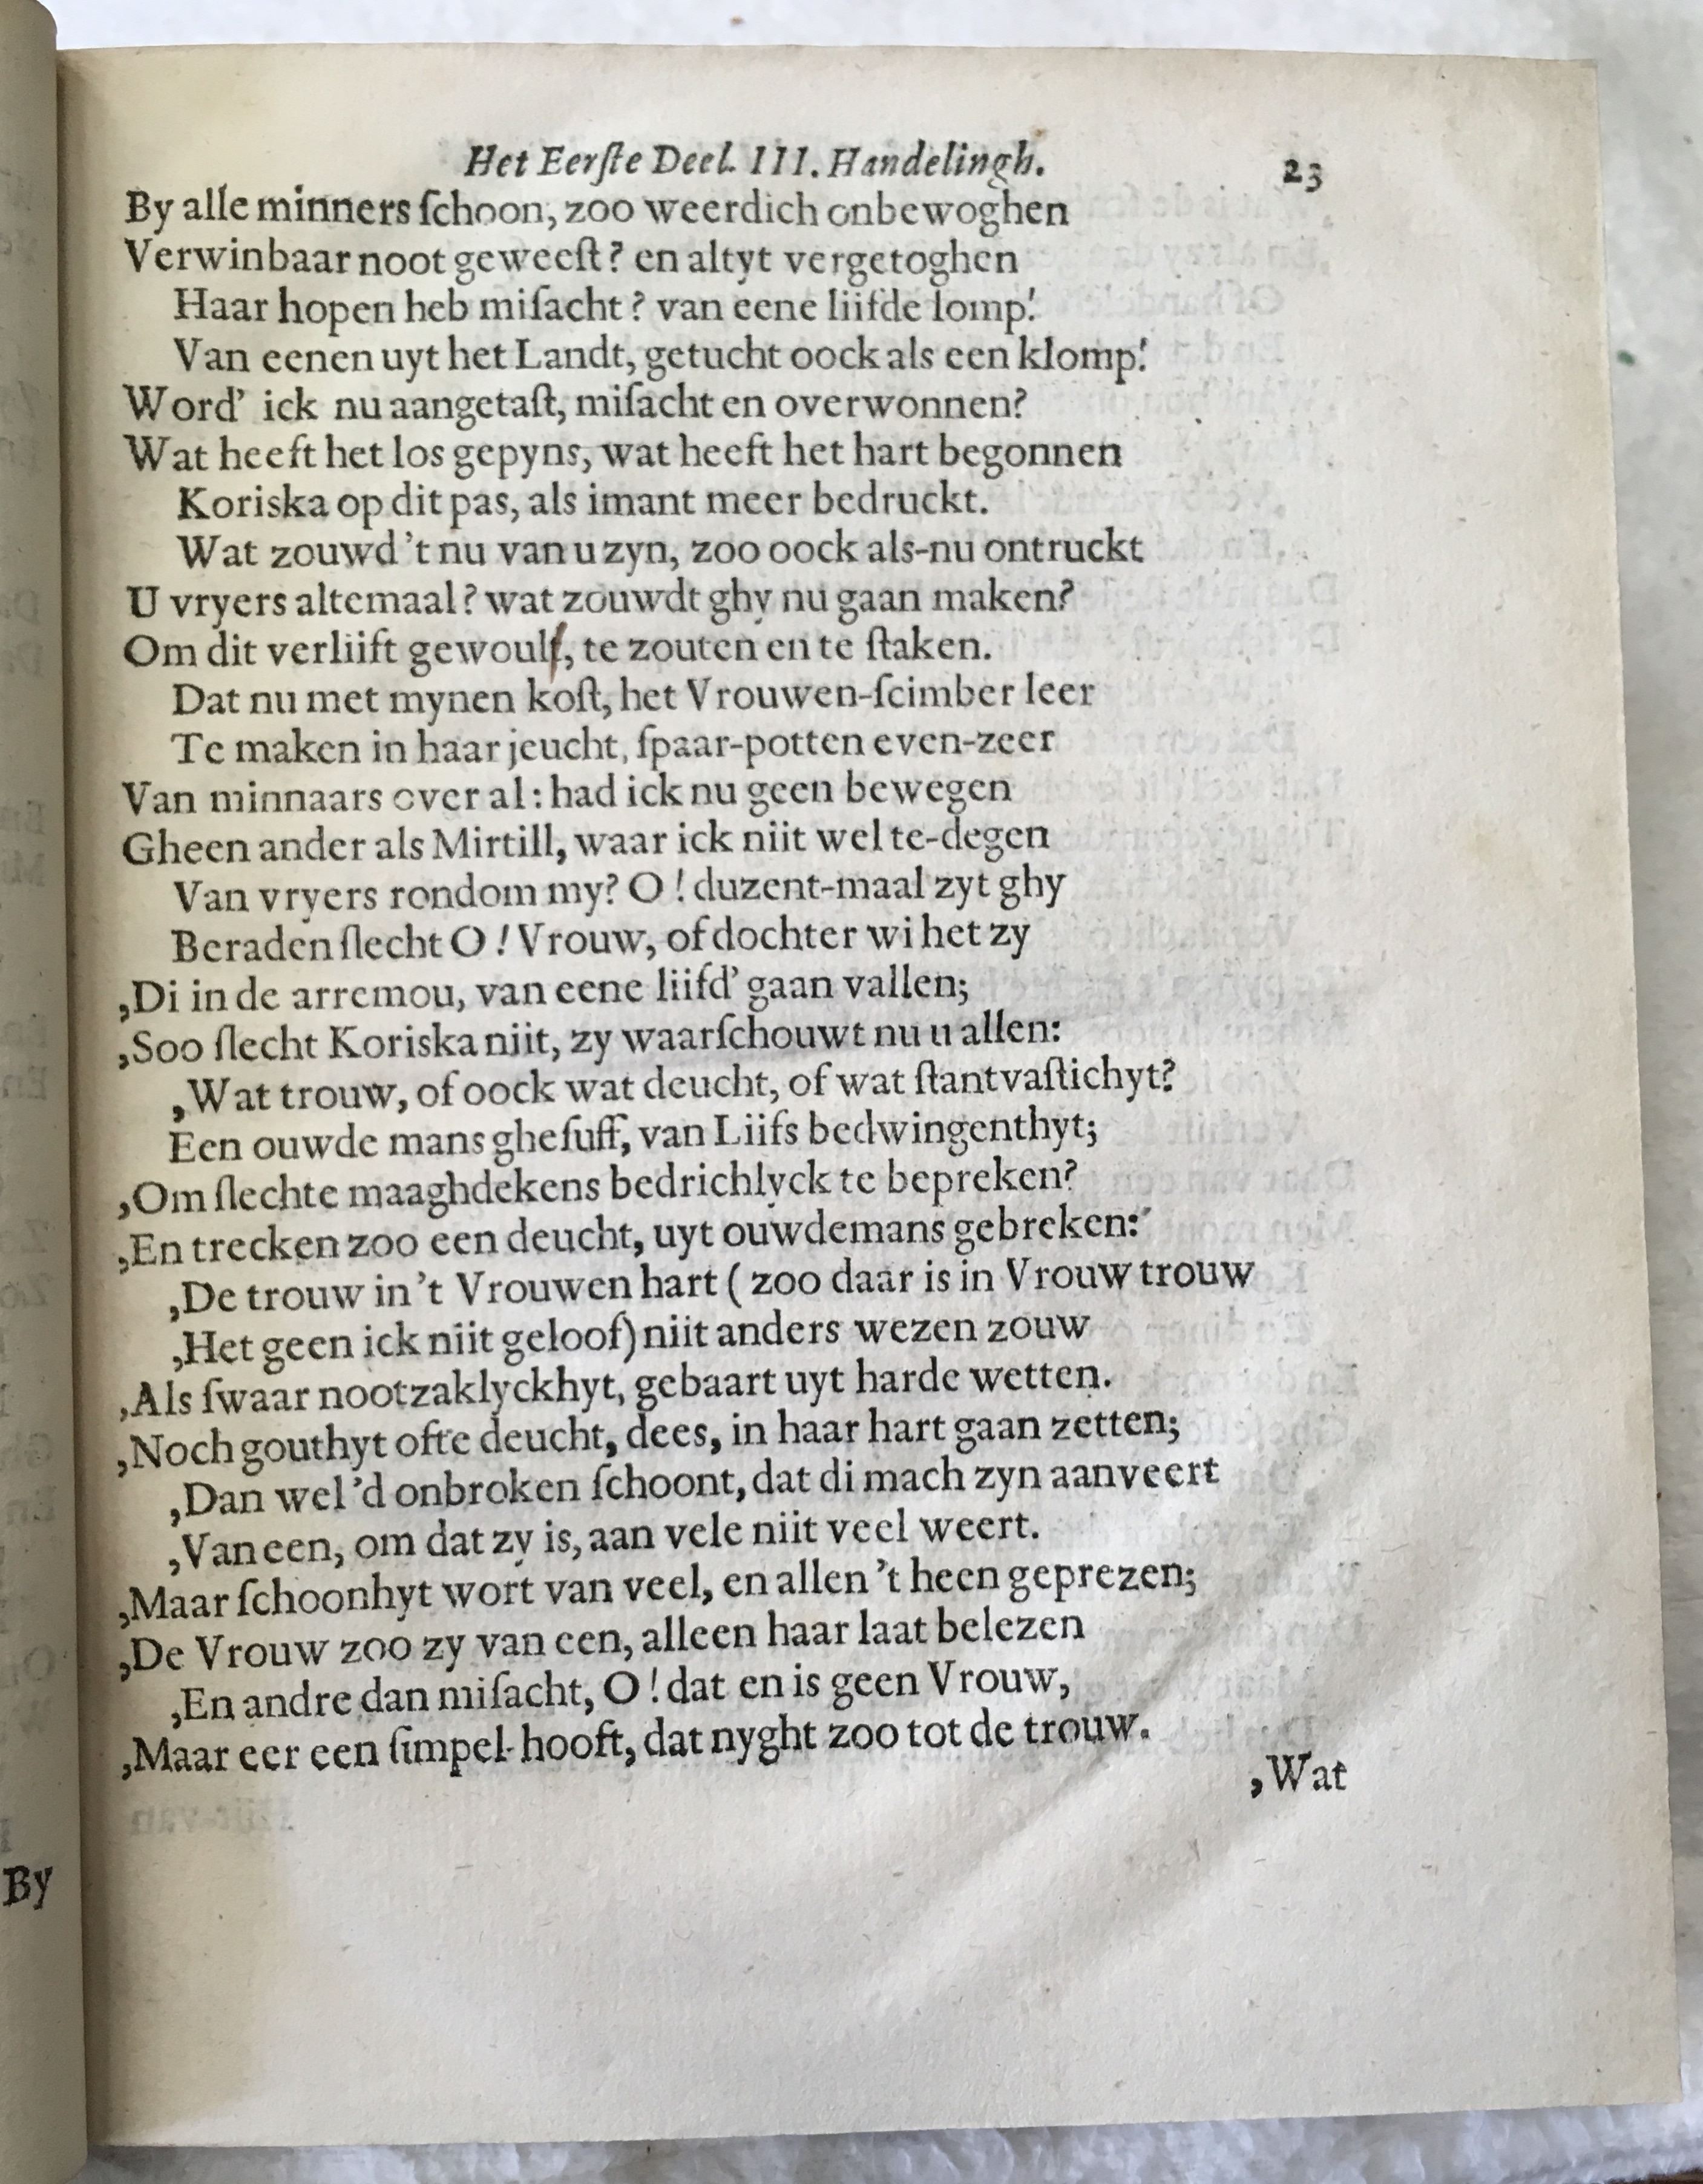 Het Eerſte Deel. III. Handelingh. 23
By alle minners ſchoon, zoo weerdich onbewoghen
Verwinbaar noot geweeſt? en altyt vergetoghen
Haar hopen heb miſacht? van eene liifde lomp!
Van eenen uyt het Landt, getucht oock als een klomp!
Word' ick nu aangetaſt, miſacht en overwonnen?
Wat heeft het los gepyns, wat heeft het hart begonnen
Koriska op dit pas, als imant meer bedruckt.
Wat zouwd 't nu van u zyn, zoo oock als-nu ontruckt
U vryers altemaal? wat zouwdt ghy nu gaan maken?
Om dit verliift gewoulf, te zouten en te ſtaken.
Dat nu met mynen koſt, het Vrouwen-ſcimber leer
Te maken in haar jeucht, ſpaar-potten even-zeer
Van minnaars over al: had ick nu geen bewegen
Gheen ander als Mirtill, waar ick niit wel te-degen
Van vryers rondom my? O! duzent-maal zyt ghy
Beraden ſlecht O! Vrouw, of dochter wi het zy
,Di in de arremou, van eene liifd' gaan vallen;
,Soo ſlecht Koriska niit, zy waarſchouwt nu u allen:
,Wat trouw, of oock wat deucht, of wat ſtantvaſtichyt?
Een ouwde mans gheſuff, van Liifs bedwingenthyt;
,Om ſlechte maaghdekens bedrichlyck te bepreken?
,En trecken zoo een deucht, uyt ouwdemans gebreken:
,De trouw in 't Vrouwen hart ( zoo daar is in Vrouw trouw
,Het geen ick niit geloof) niit anders wezen zouw
,Als ſwaar nootzaklyckhyt, gebaart uyt harde wetten.
,Noch gouthyt ofte deucht, dees, in haar hart gaan zetten;
,Dan wel 'd onbroken ſchoont, dat di mach zyn aanveert
,Van een, om dat zy is, aan vele niit veel weert.
,Maar ſchoonhyt wort van veel, en allen 't heen geprezen;
,De Vrouw zoo zy van een, alleen haar laat belezen
,En andre dan miſacht, O! dat en is geen Vrouw,
,Maar eer een ſimpel-hooft, dat nyght zoo tot de trouw.
,Wat
By